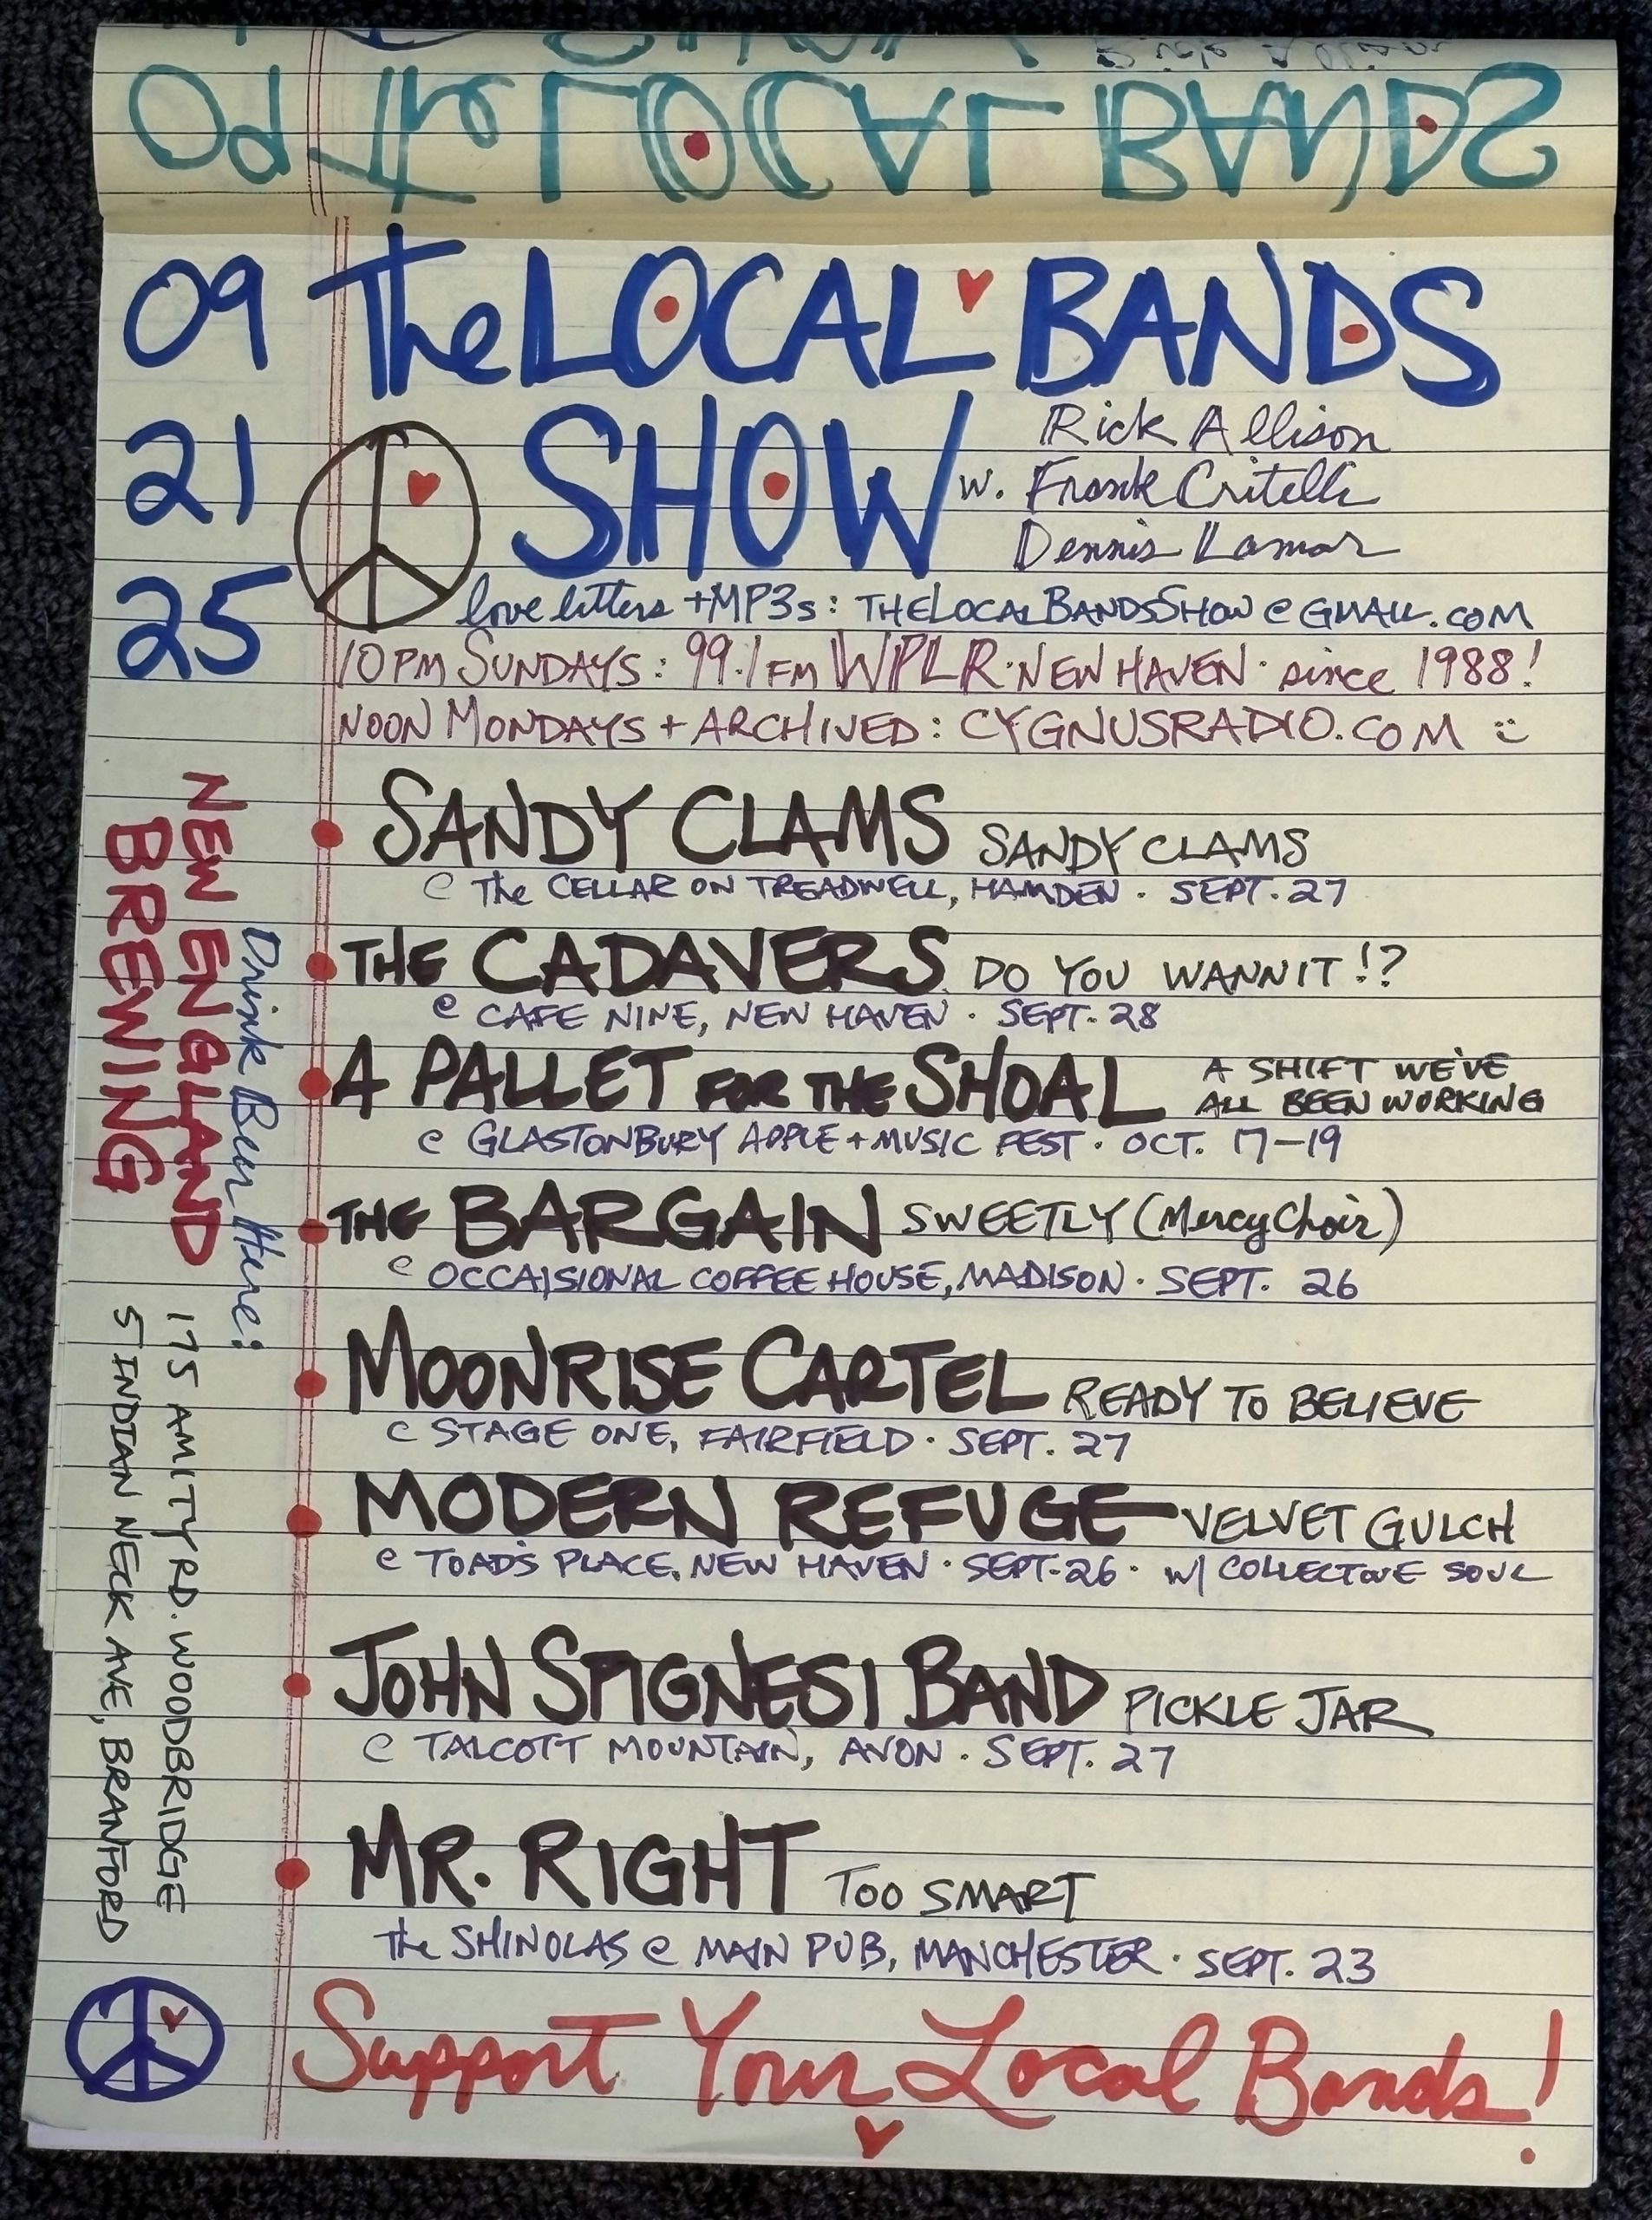 The LOCAL BANDS
09 The LOCAL BANDS
21 SHOW
Rick Allison
w. Frank Critelli
Dennis Lamar
25
love letters + MP3s: THELOCALBANDSSHOW@GMAIL.COM
10PM SUNDAYS: 99.1FM WPLR·NEW HAVEN· since 1988!
NOON MONDAYS + ARCHIVED: CYGNUSRADIO.COM
SANDY CLAMS SANDY CLAMS
@ The CELLAR ON TREADWELL, HAMDEN · SEPT. 27
THE CADAVERS DO YOU WANNIT!?
@ CAFE NINE, NEW HAVEN · SEPT. 28
A PALLET FOR THE SHOAL A SHIFT WE'VE
ALL BEEN WORKING
@ GLASTONBURY APPLE + MUSIC FEST · OCT. 17-19
THE BARGAIN SWEETLY (Mercy Choir)
@ OCCAISIONAL COFFEE HOUSE, MADISON · SEPT. 26
MOONRISE CARTEL READY TO BELIEVE
@ STAGE ONE, FAIRFIELD · SEPT. 27
MODERN REFUGE VELVET GULCH
@ TOAD'S PLACE, NEW HAVEN · SEPT. 26 · w/ COLLECTIVE SOUL
JOHN SPIGNESI BAND PICKLE JAR
@ TALCOTT MOUNTAIN, AVON · SEPT. 27
MR. RIGHT TOO SMART
The SHINOLAS @ MAIN PUB, MANCHESTER · SEPT. 23
Support Your Local Bands!
Drink Beer Here:
NEW ENGLAND
BREWING
175 AMITY RD. WOODBRIDGE
5 INDIAN NECK AVE, BRANFORD